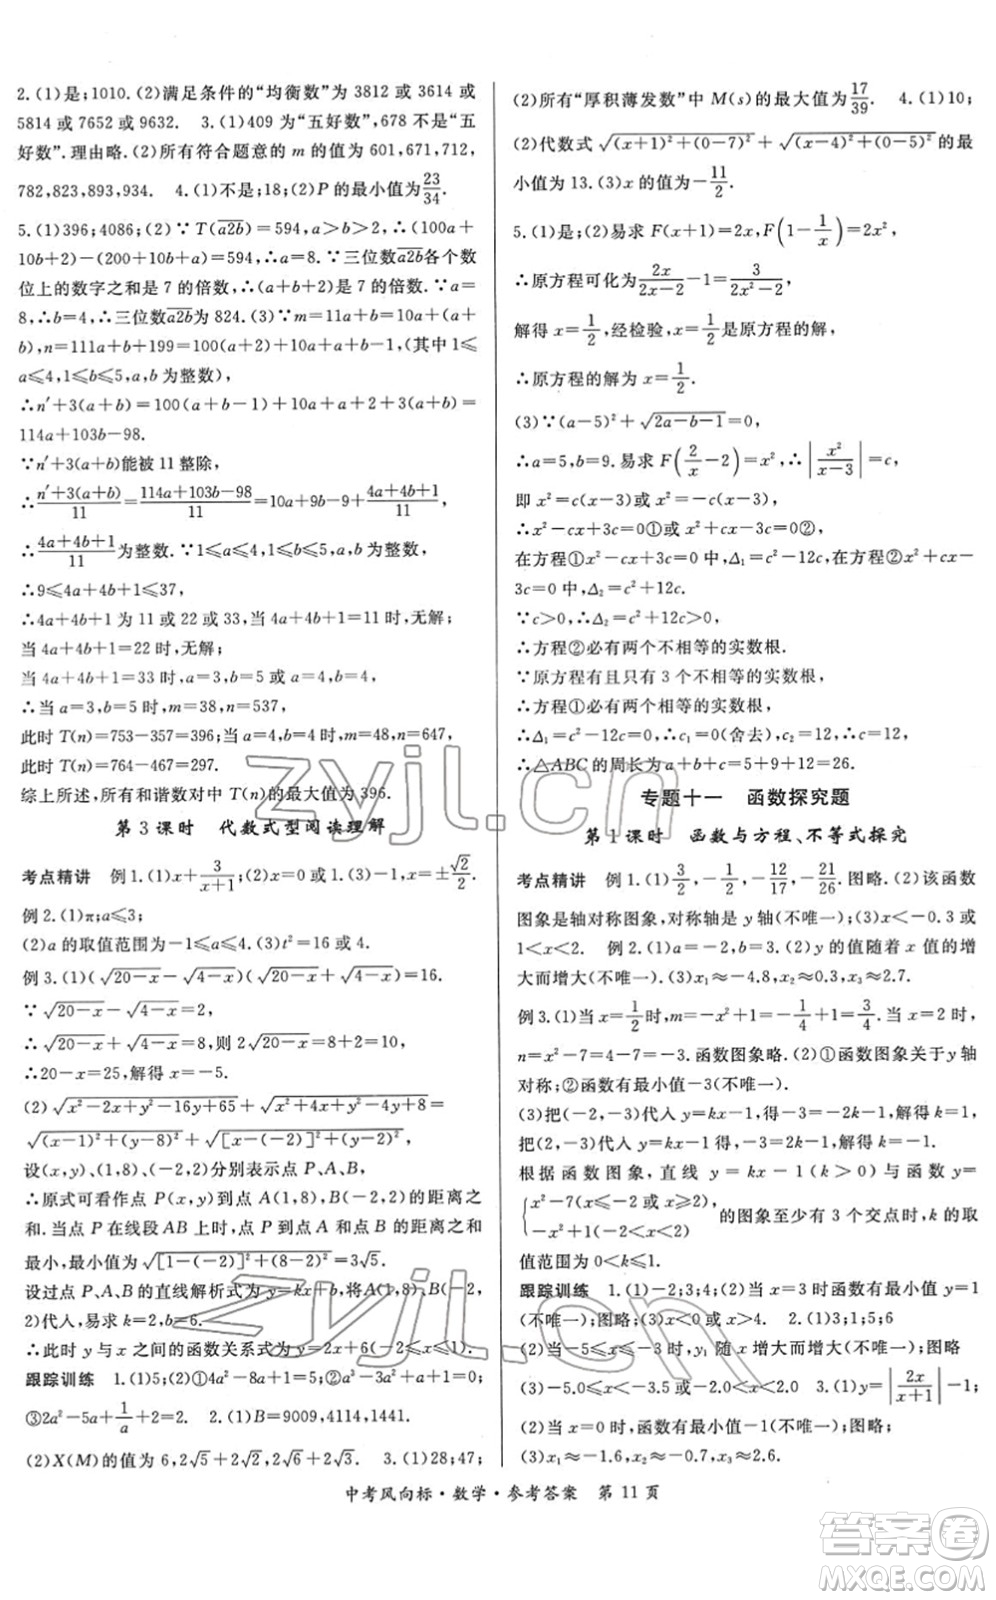 2.(1)是;1010.(2)满足条件的“均衡数”为 3812 或 3614 或
5814 或 7652 或 9632.  3.(1)409 为“五好数”,678 不是“五
好数”.理由略.(2)所有符合题意的 m 的值为 601,671,712,
782,823,893,934.  4.(1)不是;18;(2)P 的最小值为23/34.
5.(1)396;4086;(2)∵T(a2b)=594,a>b>2,∴(100a+
10b+2)-(200+10a+b)=594,∴a=8.∵三位数a2b各个数
位上的数字之和是 7 的倍数,∴(a+b+2)是 7 的倍数.∵a=
8,∴b=4,∴三位数a2b为 824.(3)∵m=11a+b=10a+(a+
b),n=111a+b+199=100(a+1)+10a+a+b-1,(其中 1≤
a≤4,1≤b≤5,a,b 为整数),
∴n′+3(a+b)=100(a+b-1)+10a+a+1+3(a+b)=
114a+103b-98.
∵n′+3(a+b)能被 11 整除,
∴(n′+3(a+b))/11=(114a+103b-98)/11=10a+9b-9+(4a+4b+1)/11,
∴(4a+4b+1)/11为整数.∵1≤a≤4,1≤b≤5,
∴9≤4a+4b+1≤37,
∴4a+4b+1 为 11 或 22 或 33,当 4a+4b+1=11 时,无解;
当 4a+4b+1=22 时,无解;
当 4a+4b+1=33 时,a=3,b=5 或 a=4,b=4,
∴当 a=3,b=5 时,m=38,n=537,
此时 T(n)=753-357=396;当 a=4,b=4 时,m=48,n=647,
此时 T(n)=764-467=297.
综上所述,所有和谐数对中 T(n)的最大值为 396.
第 3 课时  代数式型阅读理解
考点精讲  例 1.(1)x+3/(x+1);(2)1 或 0 或 1.(3)-1,x=±√2/2.
例 2.(1)π;a≤3;
(2)a 的取值范围为-1≤a≤2.(3)t²=16 或 4.
例 3.(1)(√(20-x)-√(4-x))(√(20-x)+√(4-x))=16.
∵√(20-x)-√(4-x)=2,
∴√(20-x)+√(4-x)=8,则 2√(20-x)=10,
∴20-x=25,∴x=-5.
(2)√(x²-2x+y²-16y+65)+√(x²+4x+y²-4y+8)=
√((x-1)²+(y-8)²)+√([x-(-2)]²+(y-2)²),
设(x,y)、(1,8)、(-2,2)分别表示点 P、A、B,
∴原式可看作点 P(x,y)到点 A(1,8)、B(-2,2)的距离之
和.当点 P 在线段 AB 上时,点 P 到点 A 和点 B 的距离之和
最小,最小值为√([1-(-2)]²+(8-2)²)=3√5.
设过点 P、A、B 的直线解析式为 y=kx+b,将 A(1,8),B(-2,
2)代人,易求 k=2,b=6.
∴此时 y 与 x 之间的函数关系式为 y=2x+6(-2≤x≤1).
跟踪训练  1.(1)5;(2)①4a²-8a+1=5;②a³-3a²+a+1=2;
③2a²-5a+1/a+2=4.  2.(1)B=9009,4114,1441.
(2)X(M)的值为 6,2√5+2√2,2√6+2.  3.(1)28;47;
(2)所有“厚积薄发数”中 M(s)的最大值为17/39.  4.(1)10;
(2)代数式√((x+1)²+(0-7)²)+√((x-4)²+(0-5)²)的最
小值为 13.(3)x 的值为-11/2.
5.(1)是;(2)易求 F(x+1)=2x,F(1-1/x)=2x²,
∴原方程可化为2x/(2x-2)-1=3/(2x²-2),
解得 x=1/2,经检验,x=1/2是原方程的解,
∴原方程的解为 x=1/2.
(3)∵(a-5)²+√(2a-b-1)=0,
∴a=5,b=9.易求 F(2/x-2)=x²,∴|x²/(x-3)|=c,
即 x²=c(x-3)或 x²=-c(x-3),
∴x²-cx+3c=0①或 x²+cx-3c=0②.
在方程①x²-cx+3c=0 中,Δ₁=c²-12c,在方程②x²+cx-
3c=0 中,Δ₂=c²+12c,
∵c>0,∴Δ₂=c²+12c>0,
∴方程②必有两个不相等的实数根.
∵原方程有且只有 3 个不相等的实数根,
∴方程①必有两个相等的实数根,
∴Δ₁=c²-12c=0,∴c₁=0(舍去),c₂=12,
∴△ABC 的周长为 a+b+c=5+9+12=26.
专题十一  函数探究题
第 1 课时  函数与方程、不等式探究
考点精讲  例 1.(1)3/2,-3/2,-12/17,-21/26.图略.(2)该函数
图象是轴对称图象,对称轴是 y 轴(不唯一).(3)x<-0.3 或
1<x<2.  例 2.(1)a=-2,b=3.(2)y 的值随着 x 值的增
大而增大(不唯一).(3)x₁≈-4.8,x₂≈0.3,x₃≈2.7.
例 3.(1)当 x=1/2时,m=-1/4+1=3/4.当 x=±2 时,
n=x²-7=4-7=-3.函数图象略.(2)①函数图象关于 y 轴
对称;②函数有最小值-3(不唯一).
(3)把(-2,-3)代入 y=kx-1,得-3=-2k-1,解得 k=1,
把(2,-3)代入 y=kx-1,得-3=2k-1,解得 k=-1.
根据函数图象,直线 y=kx-1(k≠0)与函数 y=
{x²-7(x≤-2或x≥2),
-x²+1(-2<x<2)  的图象至少有 3 个交点时,k 的取
值范围为 0<k≤1.
跟踪训练  1.(1)-2;3;4;(2)当 x=3 时函数有最小值 y=1
(不唯一);图略;(3)x<0 或 x>4.  2.(1)3;1;5;6
(2)当-5≤x≤-3 时,y₁ 随 x 增大而增大(不唯一);图略
(3)-5.0≤x≤-3.5 或 x≥2.0  3.(1)y=|2x/(x+1)|-1;
(2)当 x=0 时,函数有最小值-1(不唯一),图略;
(3)x₁≈-1.5,x₂≈-0.6,x₃≈2.2.
中考风向标·数学·参考答案  第 11 页
zyjl.cn
zyjl.cn
答案圈
MXQE.COM